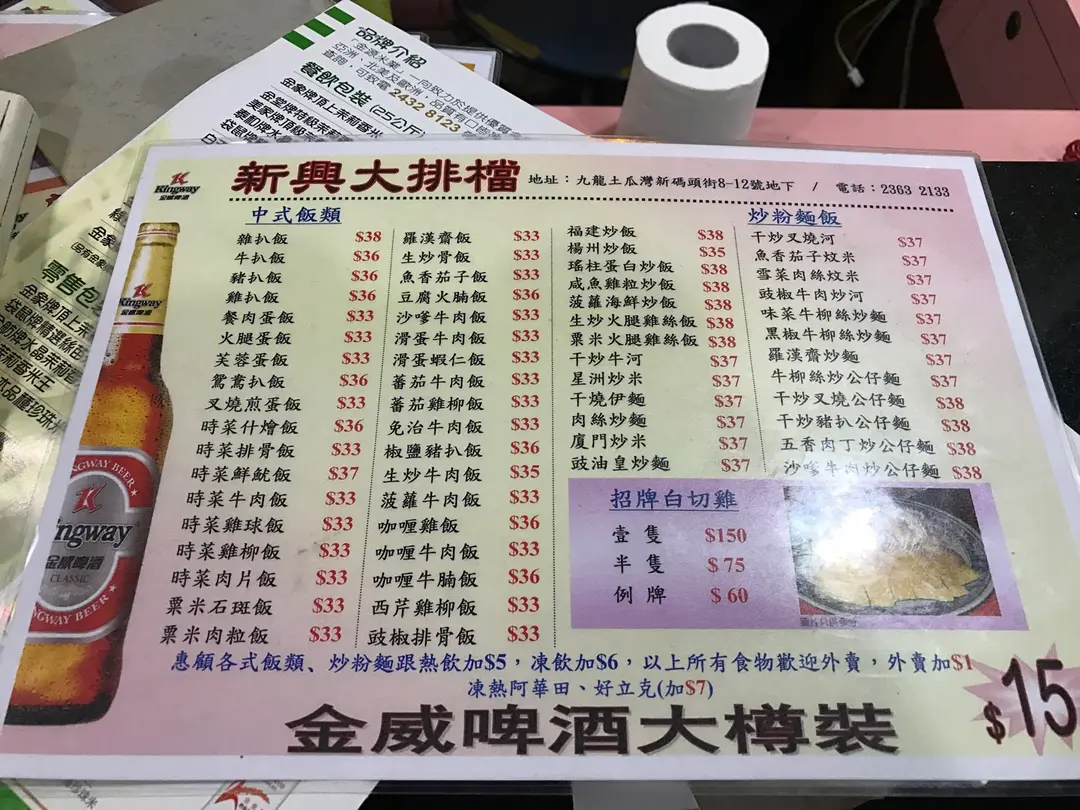 品牌介紹
「金源米業」一向致力於提供優質
亞洲、北美及歐洲，品質有口皆
查詢，可致電 2432 8123
餐飲包裝 (25公斤)
金象牌頂上茉莉香米
Kingway
金威啤酒
新興大排檔
地址：九龍土瓜灣新碼頭街8-12號地下 / 電話：2363 2133
中式飯類
雜扒飯 $38
牛扒飯 $36
豬扒飯 $36
雞扒飯 $36
餐肉蛋飯 $33
火腿蛋飯 $33
芙蓉蛋飯 $33
鴛鴦扒飯 $36
叉燒煎蛋飯 $33
時菜什燴飯 $36
時菜排骨飯 $33
時菜鮮魷飯 $37
時菜牛肉飯 $33
時菜雞球飯 $33
時菜雞柳飯 $33
時菜肉片飯 $33
粟米石斑飯 $33
粟米肉粒飯 $33
羅漢齋飯 $33
生炒骨飯 $33
魚香茄子飯 $33
豆腐火腩飯 $36
沙嗲牛肉飯 $33
滑蛋牛肉飯 $33
滑蛋蝦仁飯 $33
蕃茄牛肉飯 $33
蕃茄雞柳飯 $33
免治牛肉飯 $33
椒鹽豬扒飯 $36
生炒牛肉飯 $35
菠蘿牛肉飯 $33
咖喱雞飯 $36
咖喱牛肉飯 $33
咖喱牛腩飯 $36
西芹雞柳飯 $33
豉椒排骨飯 $33
福建炒飯 $38
楊州炒飯 $35
瑤柱蛋白炒飯 $38
咸魚雞粒炒飯 $38
菠蘿海鮮炒飯 $38
生炒火腿雞絲飯 $38
粟米火腿雞絲飯 $38
干炒牛河 $37
星洲炒米 $37
干燒伊麵 $37
肉絲炒麵 $37
廈門炒米 $37
豉油皇炒麵 $37
炒粉麵飯
干炒叉燒河 $37
魚香茄子炆米 $37
雪菜肉絲炆米 $37
豉椒牛肉炒河 $37
味菜牛柳絲炒麵 $37
黑椒牛柳絲炒麵 $37
羅漢齋炒麵 $37
牛柳絲炒公仔麵 $37
干炒叉燒公仔麵 $38
干炒豬扒公仔麵 $38
五香肉丁炒公仔麵 $38
沙嗲牛肉炒公仔麵 $38
招牌白切雞
壹隻 $150
半隻 $75
例牌 $60
Kingway
KINGWAY BEER
Kingway
金威啤酒
CLASSIC
KINGWAY BEER
惠顧各式飯類、炒粉麵跟熱飲加$5，凍飲加$6，以上所有食物歡迎外賣，外賣加$1
凍熱阿華田、好立克(加$7)
金威啤酒大樽裝
$15